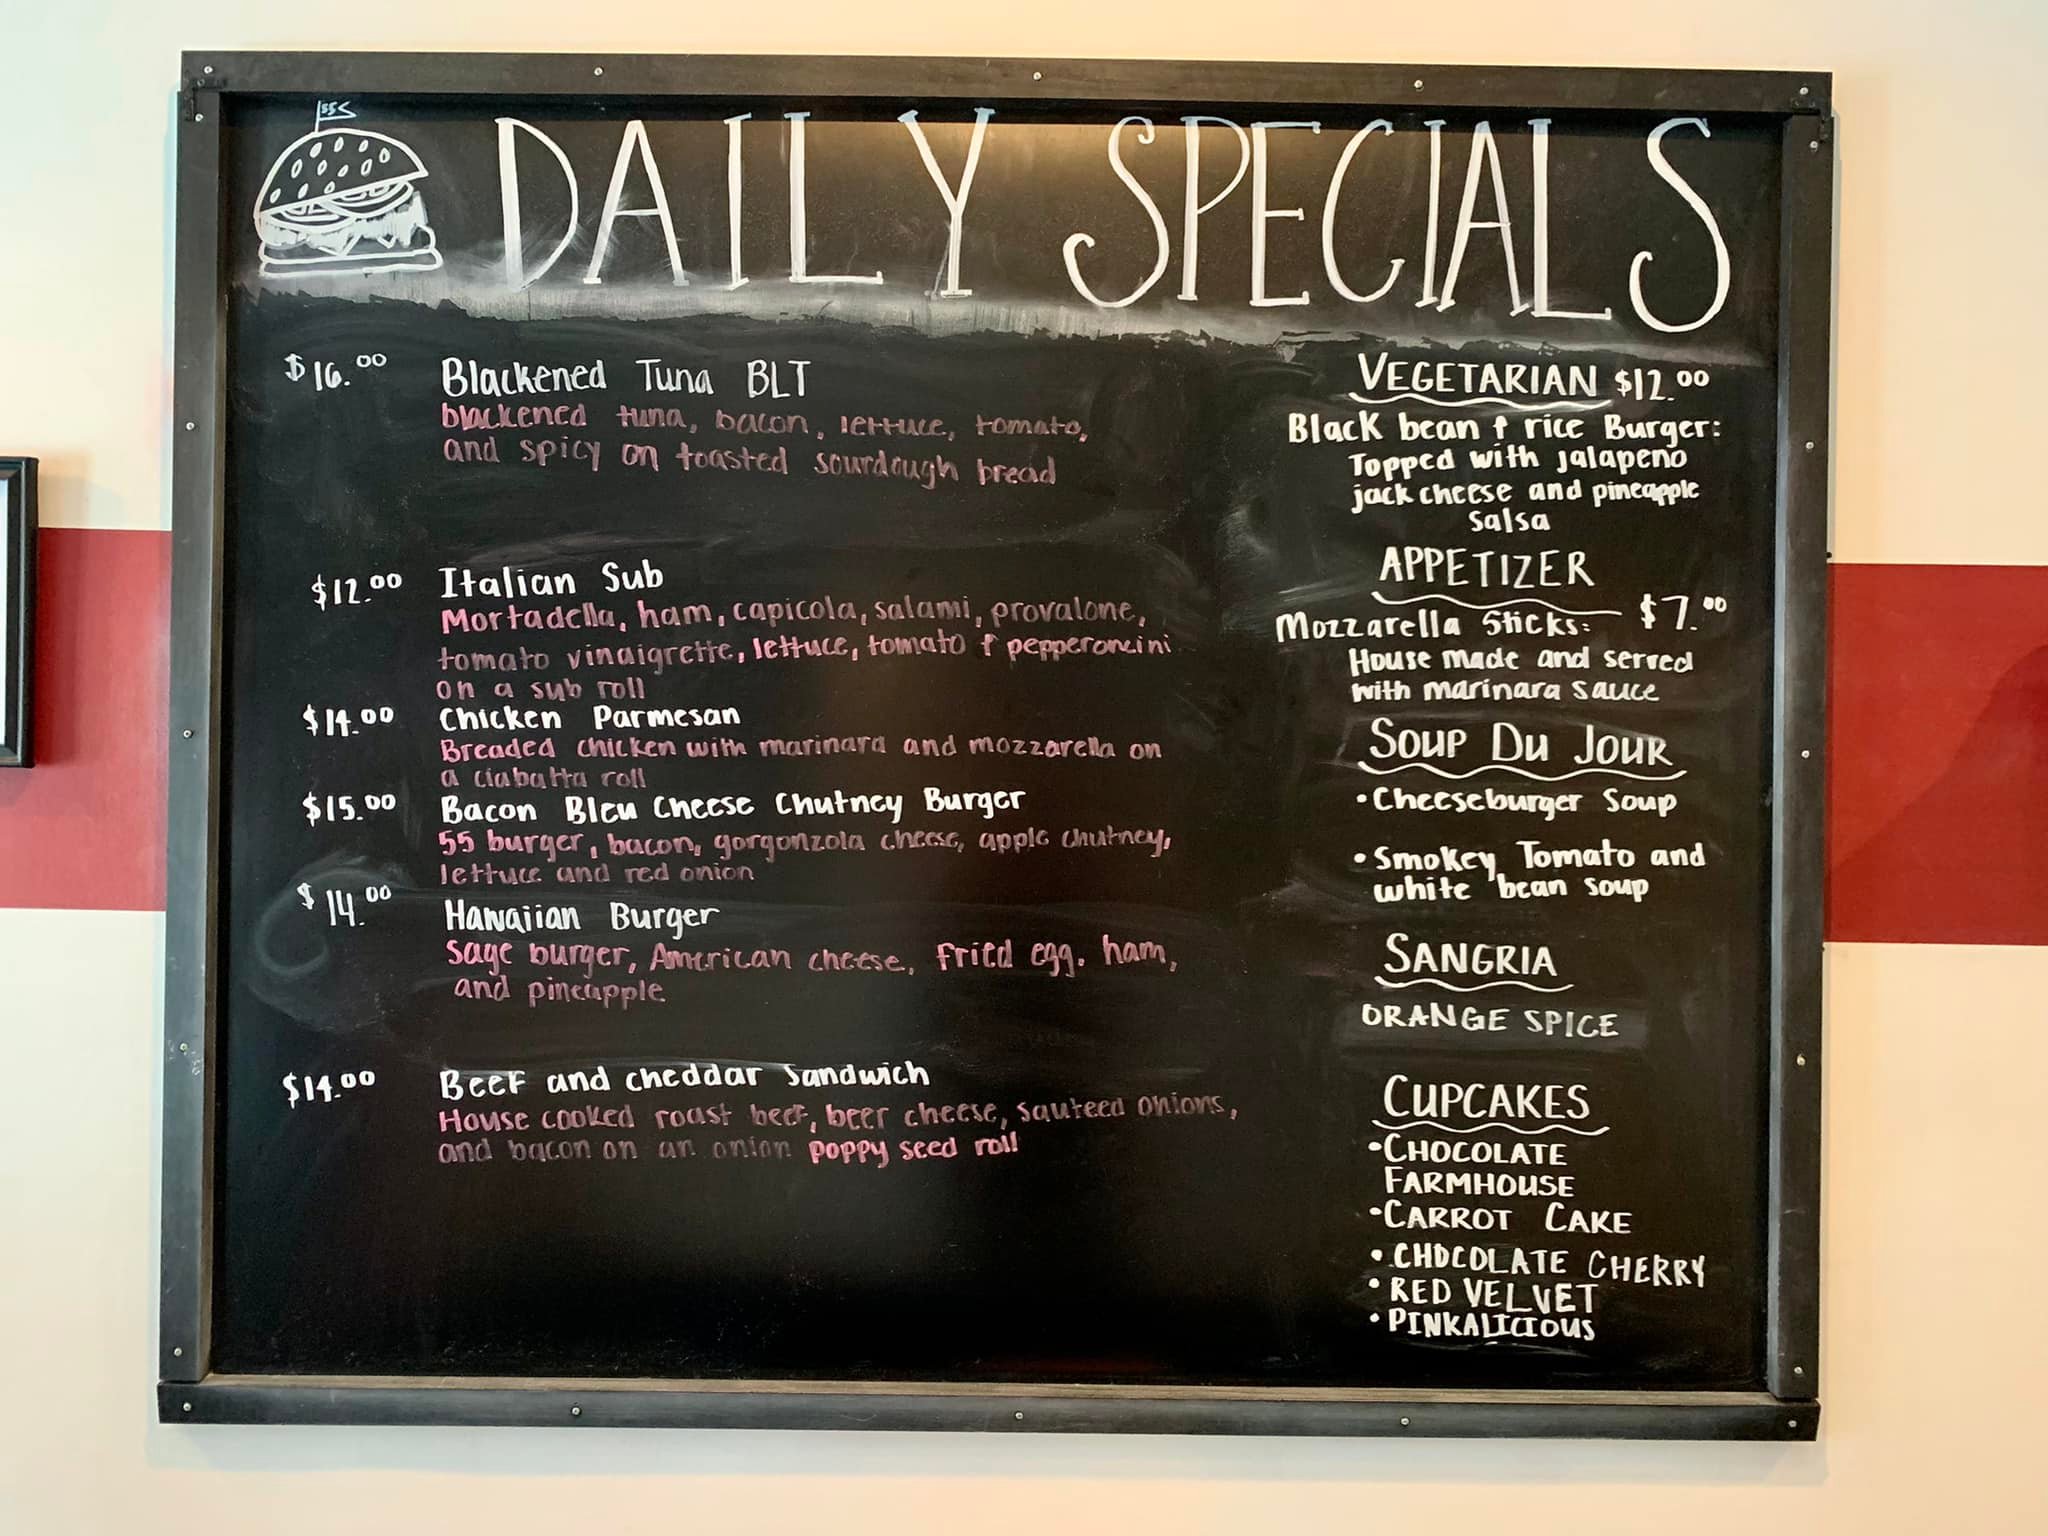 55
DAILY SPECIALS
$16.00 Blackened Tuna BLT
blackened tuna, bacon, lettuce, tomato,
and spicy on toasted sourdough bread
$12.00 Italian Sub
Mortadella, ham, capicola, salami, provalone,
tomato vinaigrette, lettuce, tomato & pepperoncini
on a sub roll
$14.00 Chicken Parmesan
Breaded chicken with marinara and mozzarella on
a ciabatta roll
$15.00 Bacon Bleu Cheese Chutney Burger
55 burger, bacon, gorgonzola cheese, apple chutney,
lettuce and red onion
$14.00 Hawaiian Burger
Sage burger, American cheese, fried egg. ham,
and pineapple
$14.00 Beef and cheddar Sandwich
House cooked roast beef, beer cheese, sauteed onions,
and bacon on an onion poppy seed roll
VEGETARIAN $12.00
Black bean & rice Burger:
Topped with jalapeno
jack cheese and pineapple
salsa
APPETIZER
Mozzarella Sticks: $7.00
House made and served
with marinara sauce
SOUP DU JOUR
• Cheeseburger Soup
• Smokey Tomato and
white bean soup
SANGRIA
ORANGE SPICE
CUPCAKES
• CHOCOLATE
FARMHOUSE
• CARROT CAKE
• CHOCOLATE CHERRY
• RED VELVET
• PINKALICIOUS